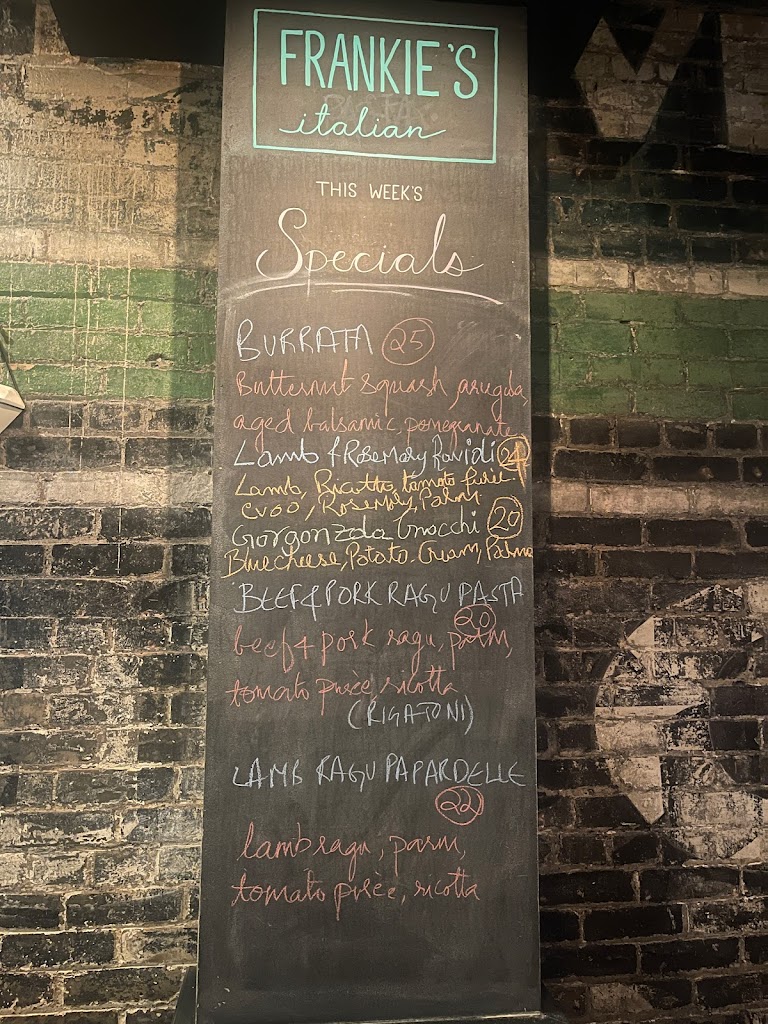 FRANKIE'S
italian
THIS WEEK'S
Specials
BURRATA 25
Butternut squash, arugula,
aged balsamic, pomegranate
Lamb & Rosemary Ravioli 24
Lamb, Ricotta, tomato purée
evoo, Rosemary, Parm
Gorgonzola Gnocchi 20
Blue cheese, Potato, Cream, Parm
BEEF & PORK RAGU PASTA
20
beef & pork ragu, parm,
tomato purèe, ricotta
(RIGATONI)
LAMB RAGU PAPARDELLE
22
lamb ragu, parm,
tomato purèe, ricotta